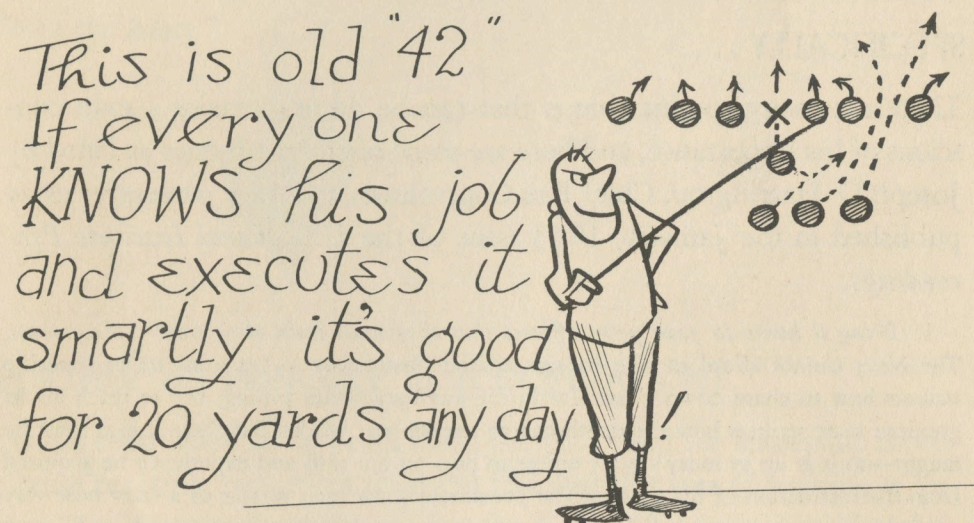 This is old "42"
If everyone
KNOWS his job
and executes it
smartly it's good
for 20 yards any day